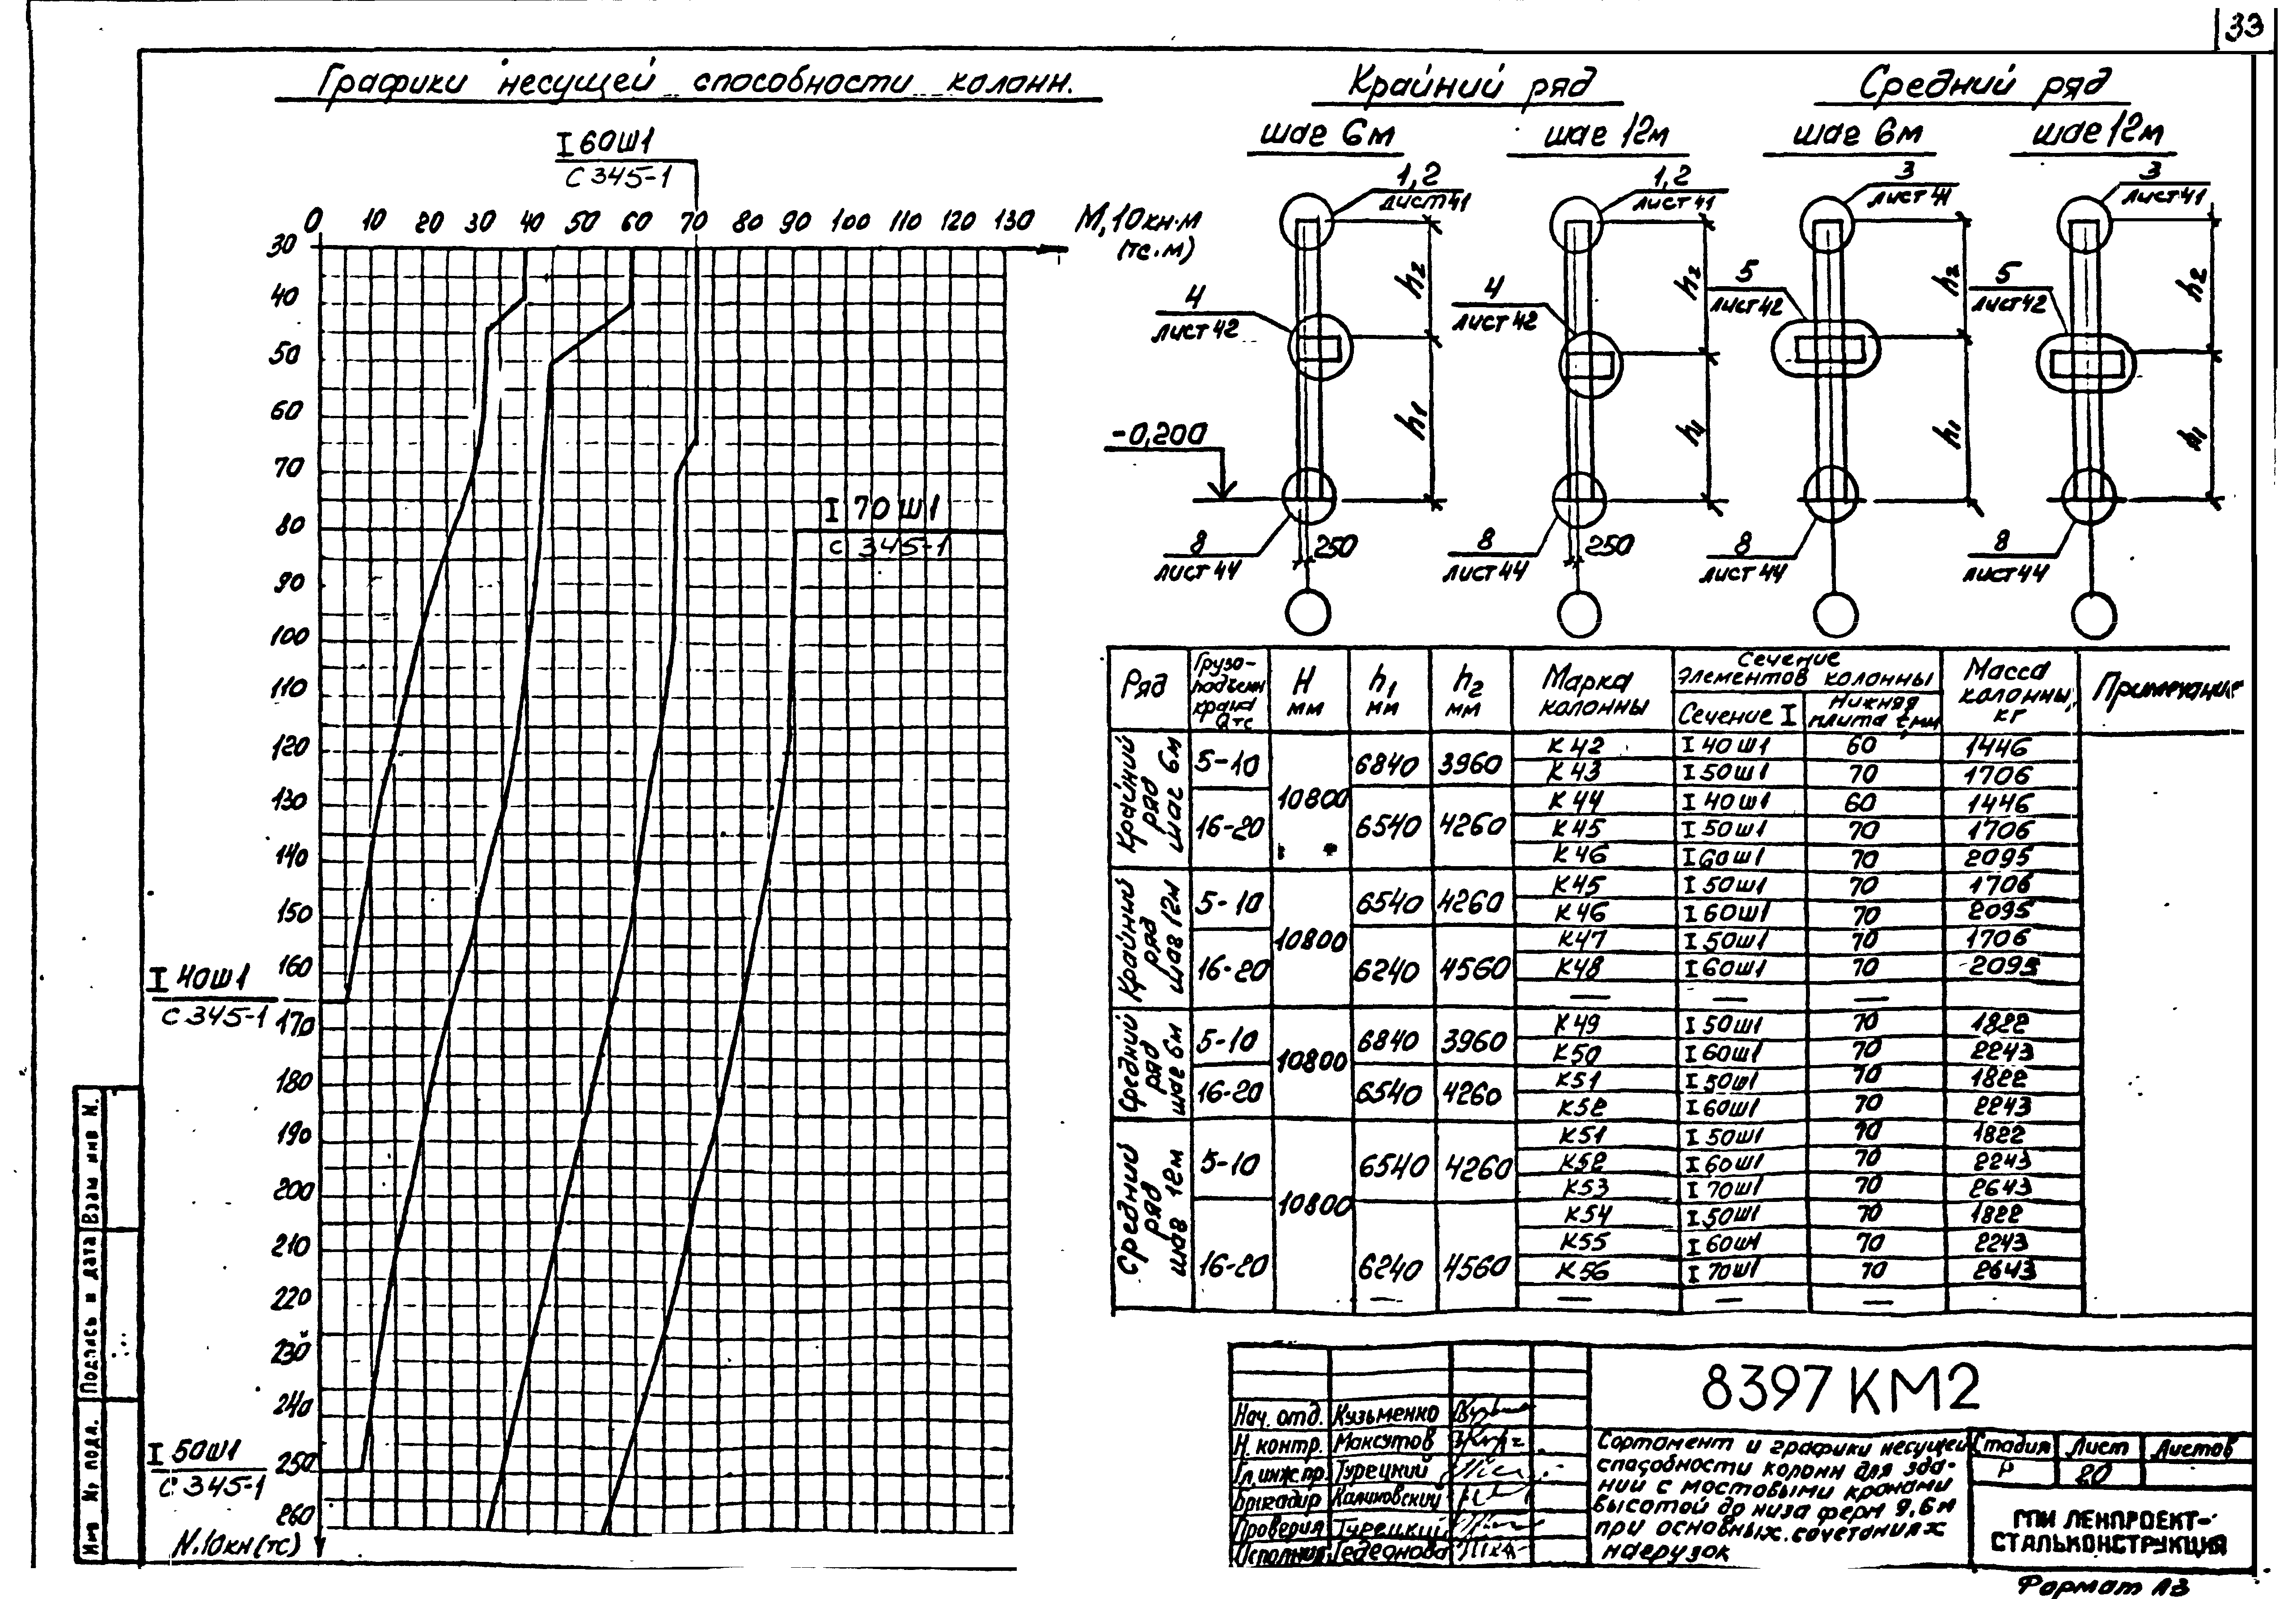 33
Графики несущей способности колонн.
I 60Ш1
С 345-1
0 10 20 30 40 50 60 70 80 90 100 110 120 130
М, 10кн·м
(тс.м)
30
40
50
60
70
80
90
100
110
120
130
140
150
160
170
180
190
200
210
220
230
240
250
260
N.10кн(тс)
I 70Ш1
С 345-1
I 40Ш1
С 345-1
I 50Ш1
С 345-1
Крайний ряд
Средний ряд
шаг 6м
шаг 12м
шаг 6м
шаг 12м
1,2
лист 41
1,2
лист 41
3
лист 41
3
лист 41
4
лист 42
4
лист 42
5
лист 42
5
лист 42
h2
h2
h2
h2
h1
h1
h1
h1
-0,200
8
лист 44
250
8
лист 44
250
8
лист 44
8
лист 44
Ряд
Грузо-
подъемн
крана
Q тс
H
мм
h1
мм
h2
мм
Марка
колонны
Сечение
элементов колонны
Сечение I
Нижняя
плита t,мм
Масса
колонны,
кг
Примечание
Крайний
ряд
шаг 6м
5-10
10800
6840 3960
К 42 I 40Ш1 60 1446
К 43 I 50Ш1 70 1706
16-20
6540 4260
К 44 I 40Ш1 60 1446
К45 I 50Ш1 70 1706
К 46 I60Ш1 70 2095
Крайний
ряд
шаг 12м
5-10
10800
6540 4260
К45 I 50Ш1 70 1706
К46 I 60Ш1 70 2095
16-20
6240 4560
К47 I 50Ш1 70 1706
К48 I 60Ш1 70 2095
— — — —
Средний
ряд
шаг 6м
5-10
10800
6840 3960
К49 I 50Ш1 70 1822
К50 I 60Ш1 70 2243
16-20
6540 4260
К51 I 50Ш1 70 1822
К52 I 60Ш1 70 2243
Средний
ряд
шаг 12м
5-10
10800
6540 4260
К51 I 50Ш1 70 1822
К52 I 60Ш1 70 2243
К53 I 70Ш1 70 2643
16-20
6240 4560
К54 I 50Ш1 70 1822
К55 I 60Ш1 70 2243
К56 I 70Ш1 70 2643
— — — —
8397 КМ2
Нач. отд. Кузьменко
Н. контр. Максутов
Гл.инж.пр. Турецкий
Бригадир Калиновский
Проверил Турецкий
Исполнил Гедеонова
Сортамент и графики несущей
способности колонн для зда-
ний с мостовыми кранами
высотой до низа ферм 9,6м
при основных сочетаниях
нагрузок
Стадия Лист Листов
Р 20
ГПИ ЛЕНПРОЕКТ-
СТАЛЬКОНСТРУКЦИЯ
Формат А3
Взам инв N.
Подпись и дата
Инв № подл.